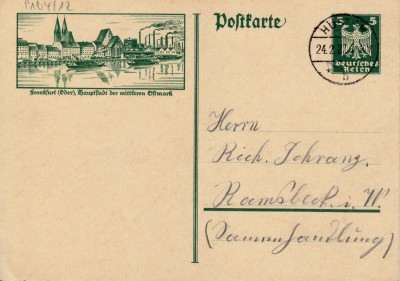 P164/12
Postkarte
Frankfurt (Oder), Hauptstadt der mittleren Ostmark
5 5
Deutsches
Reich
24.2
b
Herrn
Rich. Schranz,
Ramsbeck i. W.
(Samenhandlung)